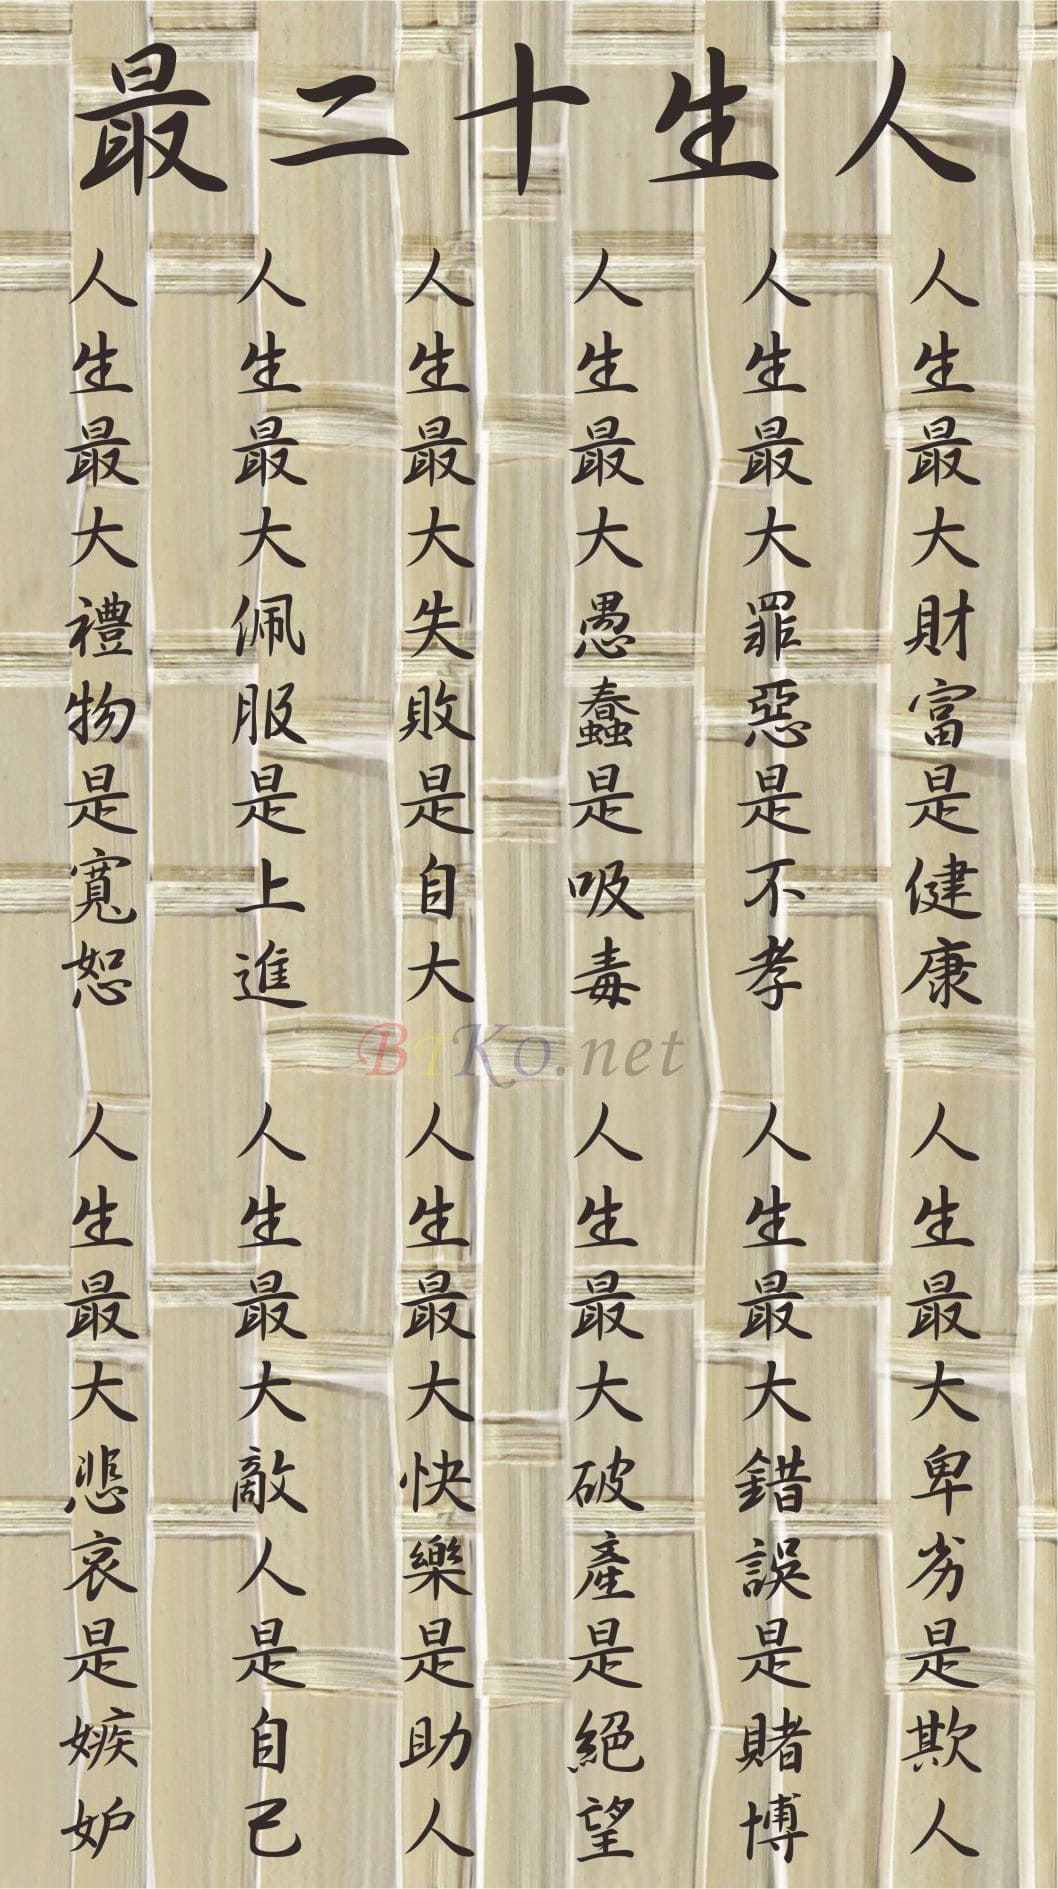 人生十二最
人生最大財富是健康
人生最大罪惡是不孝
人生最大愚蠢是吸毒
人生最大失敗是自大
人生最大佩服是上進
人生最大禮物是寬恕
BiKo.net
人生最大卑劣是欺人
人生最大錯誤是賭博
人生最大破產是絕望
人生最大快樂是助人
人生最大敵人是自己
人生最大悲哀是嫉妒